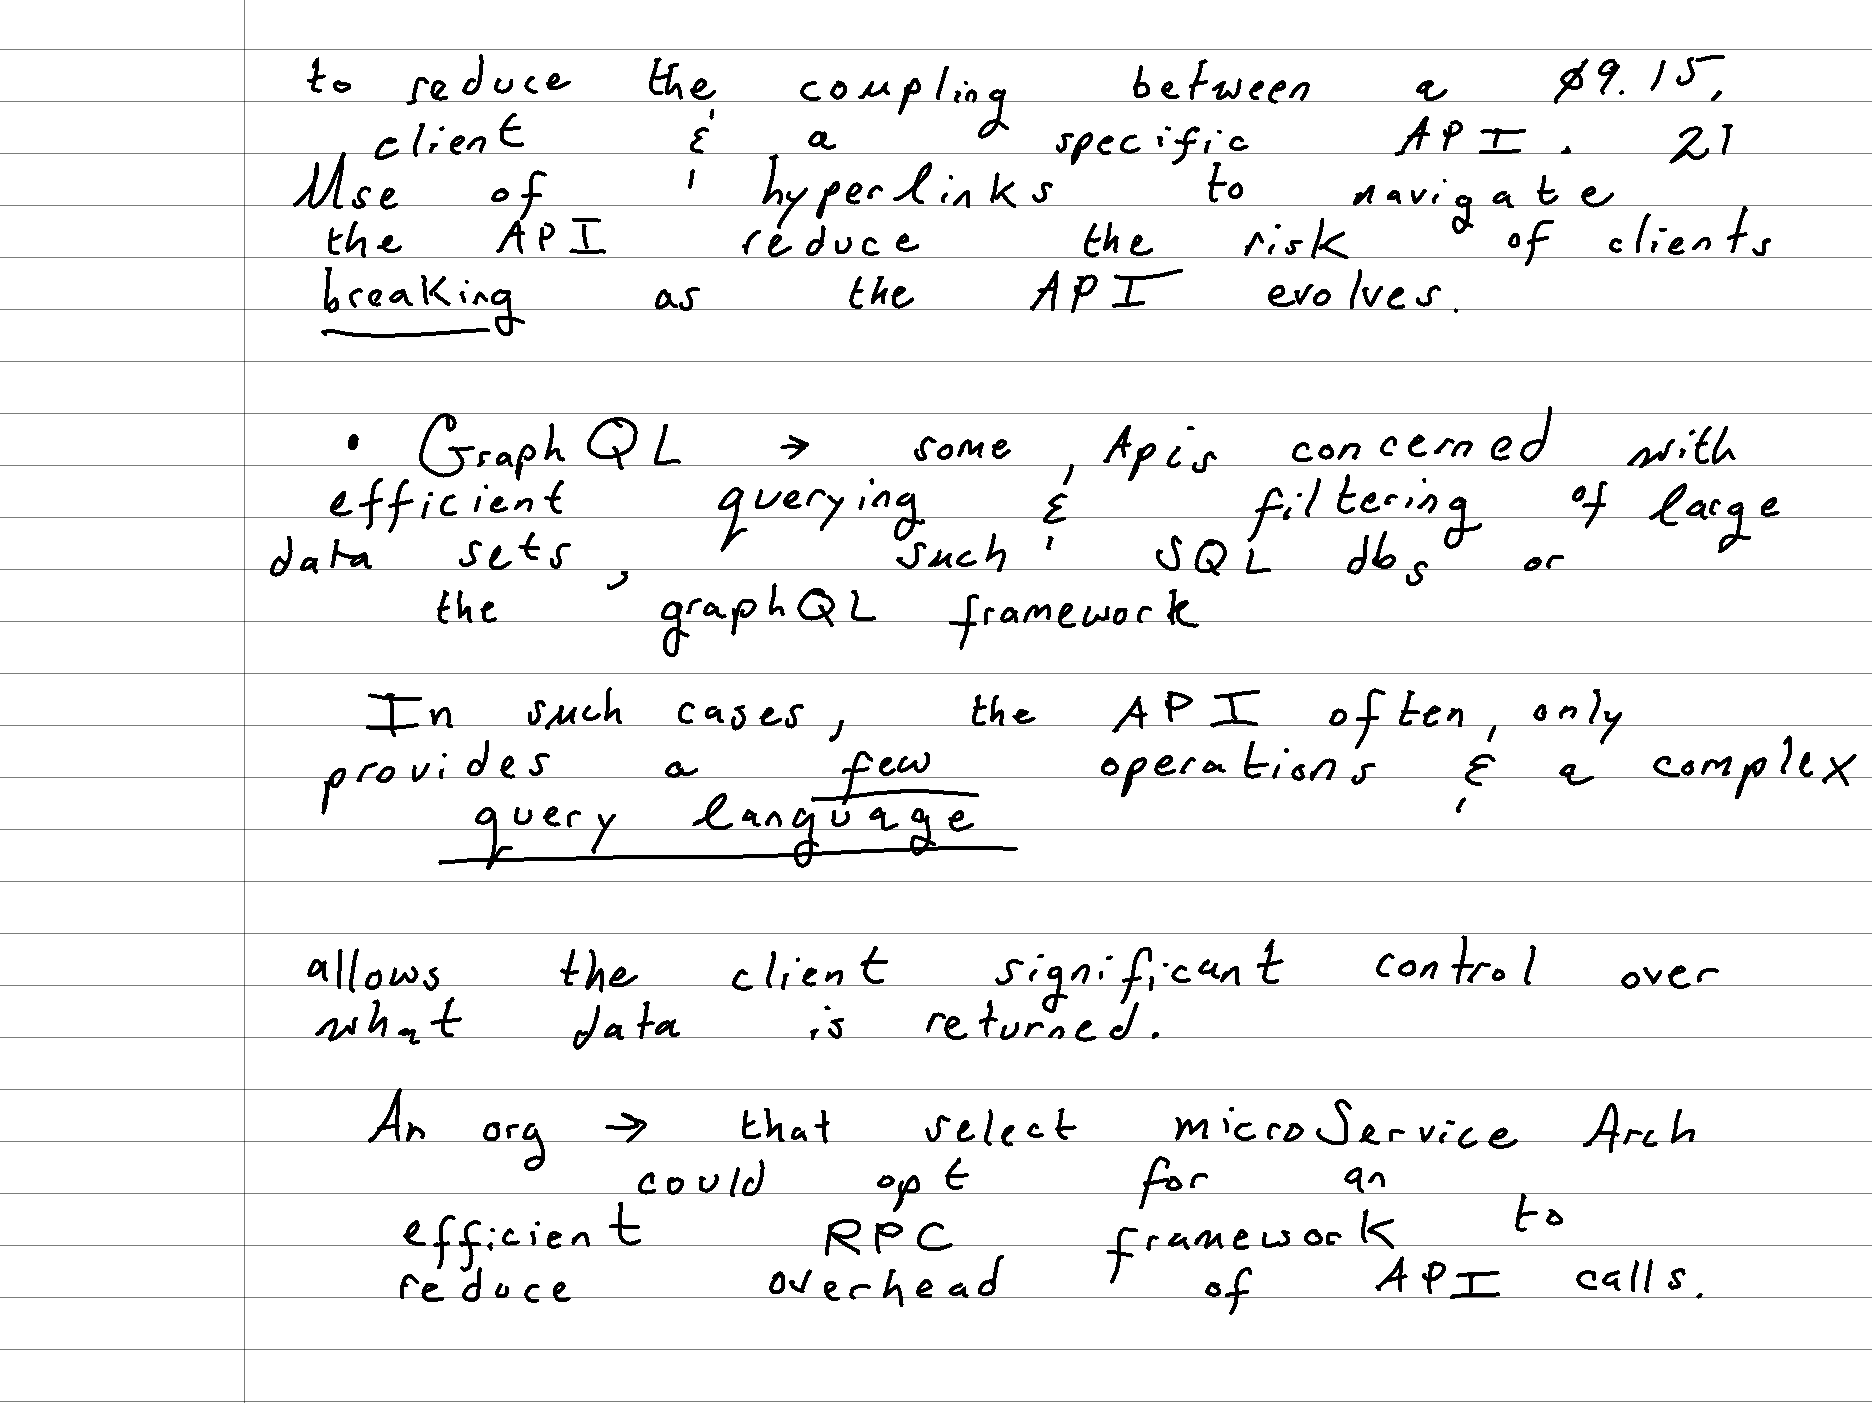 to reduce the coupling between a 09.15.
client & a specific API. 21
Use of hyperlinks to navigate
the API reduce the risk of clients
breaking as the API evolves.
• GraphQL → some Apis concerned with
efficient querying & filtering of large
data sets, such SQL dbs or
the graphQL framework
In such cases, the API often only
provides a few operations & a complex
query language
allows the client significant control over
what data is returned.
An org → that select microService Arch
could opt for an
efficient RPC framework to
reduce overhead of API calls.